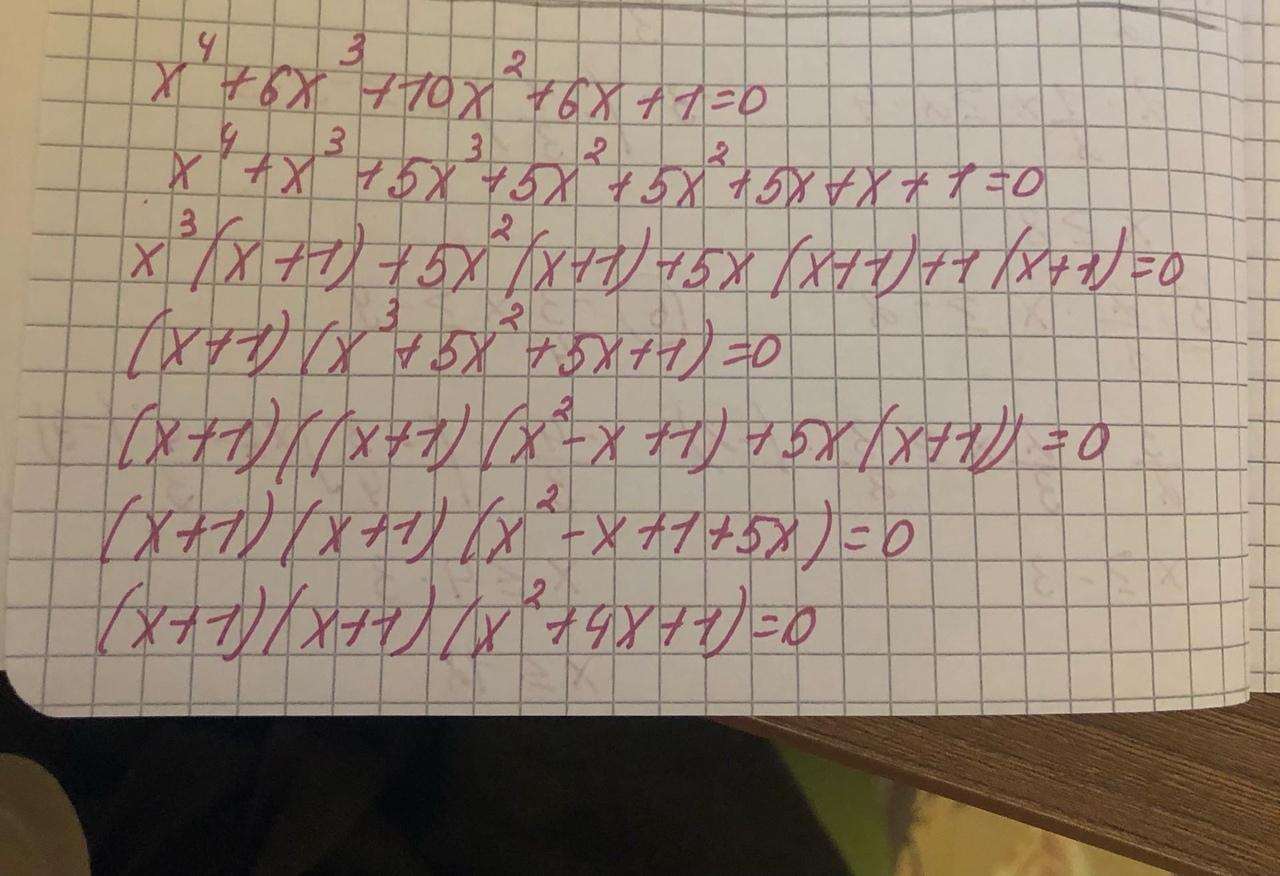 x⁴+6x³+10x²+6x+1=0
x⁴+x³+5x³+5x²+5x²+5x+x+1=0
x³(x+1)+5x²(x+1)+5x(x+1)+1(x+1)=0
(x+1)(x³+5x²+5x+1)=0
(x+1)((x+1)(x²-x+1)+5x(x+1))=0
(x+1)(x+1)(x²-x+1+5x)=0
(x+1)(x+1)(x²+4x+1)=0